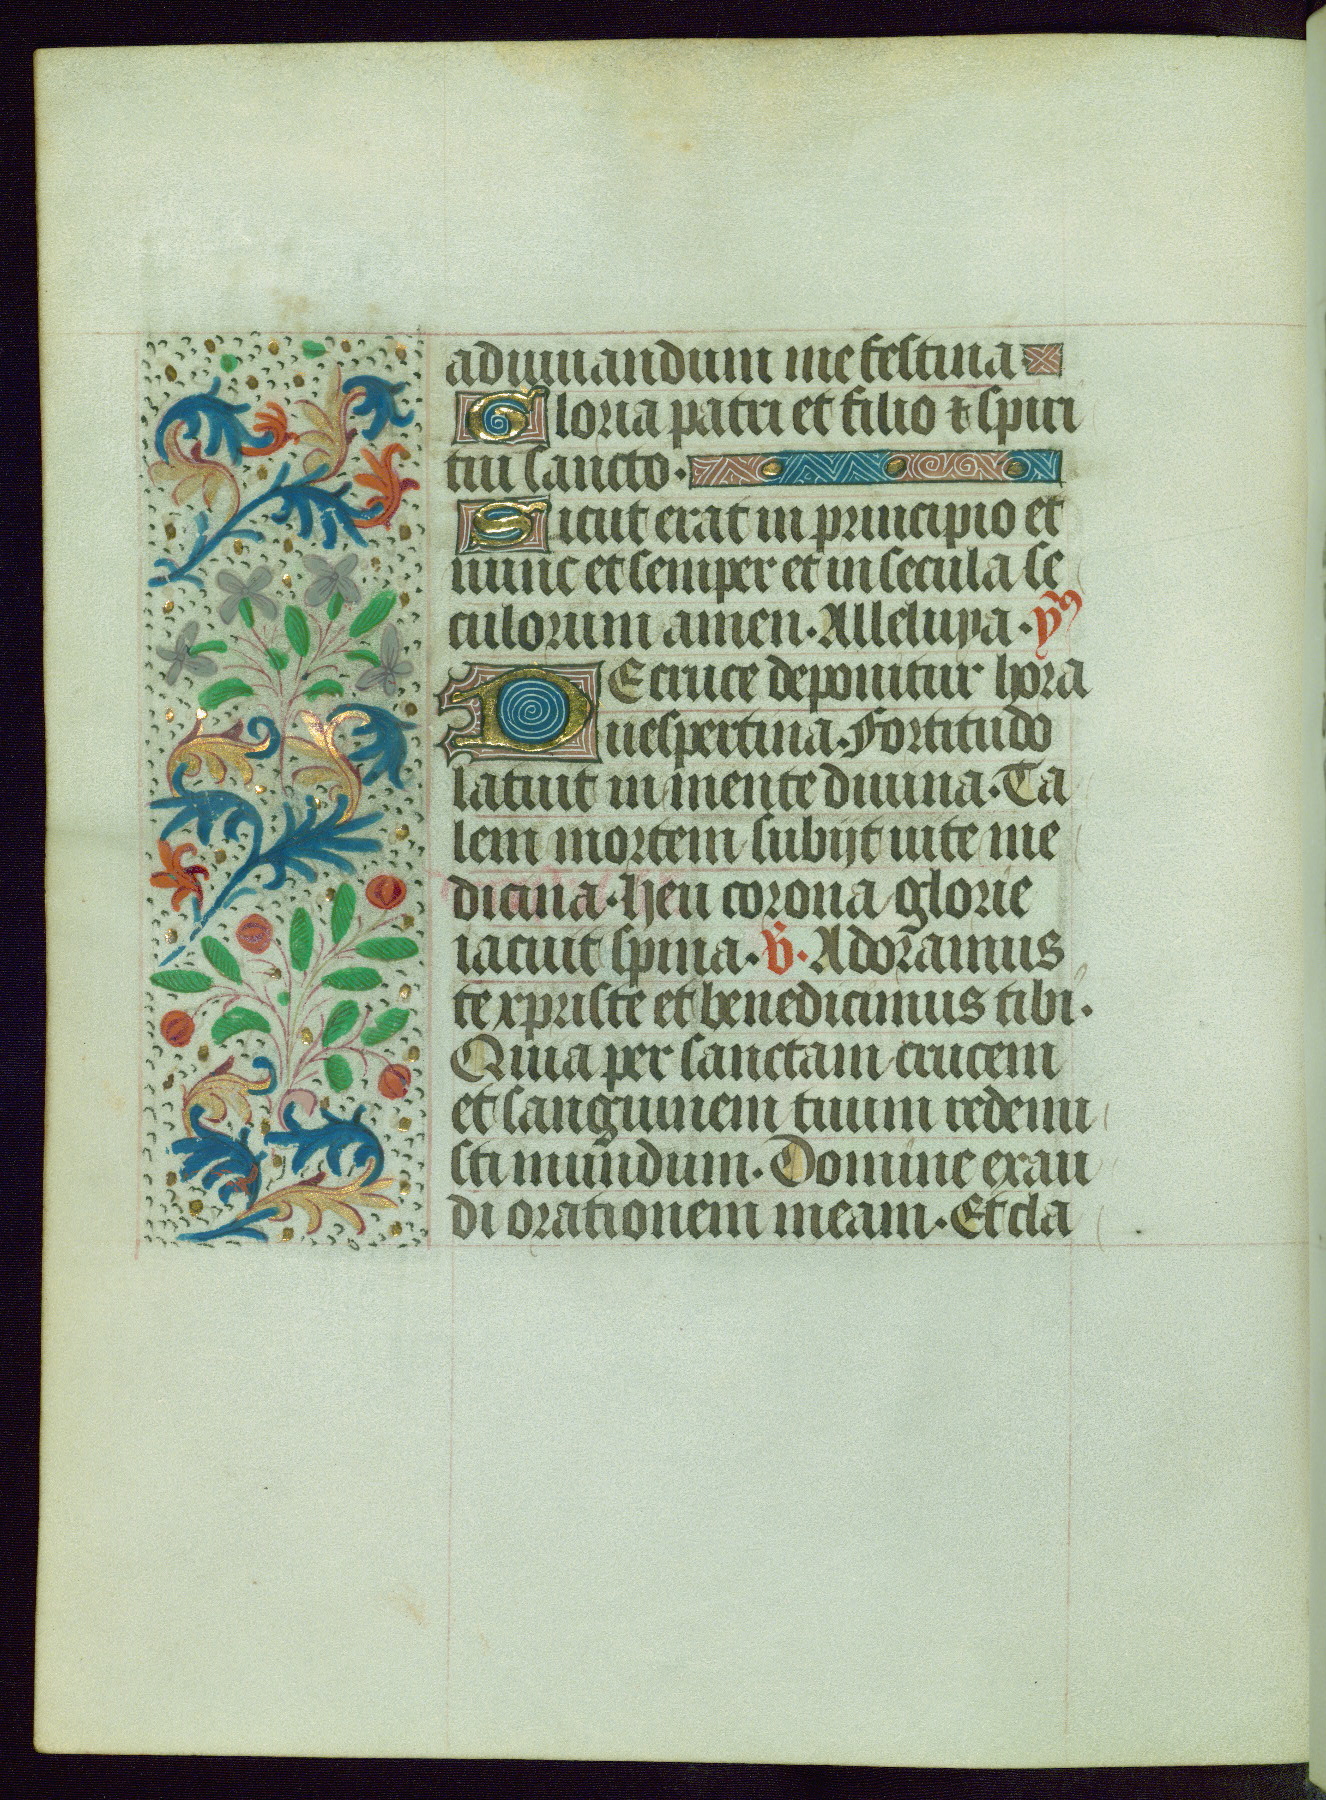 adiuuandum me festina
Gloria patri et filio ⁊ spiri
tui sancto.
Sicut erat in principio et
nunc et semper et in secula se
culorum amen. Alleluya. ym̅9
DE cruce deponitur hora
uespertina. Fortitudo
latuit in mente diuina. Ta
lem mortem subijt uite me
dicina. heu corona glorie
iacuit spina. V̅. Adoramus
te xpriste et benedicimus tibi.
Quia per sanctam crucem
et sanguinem tuum redemi
sti mundum. Domine exau
di orationem meam. Et cla